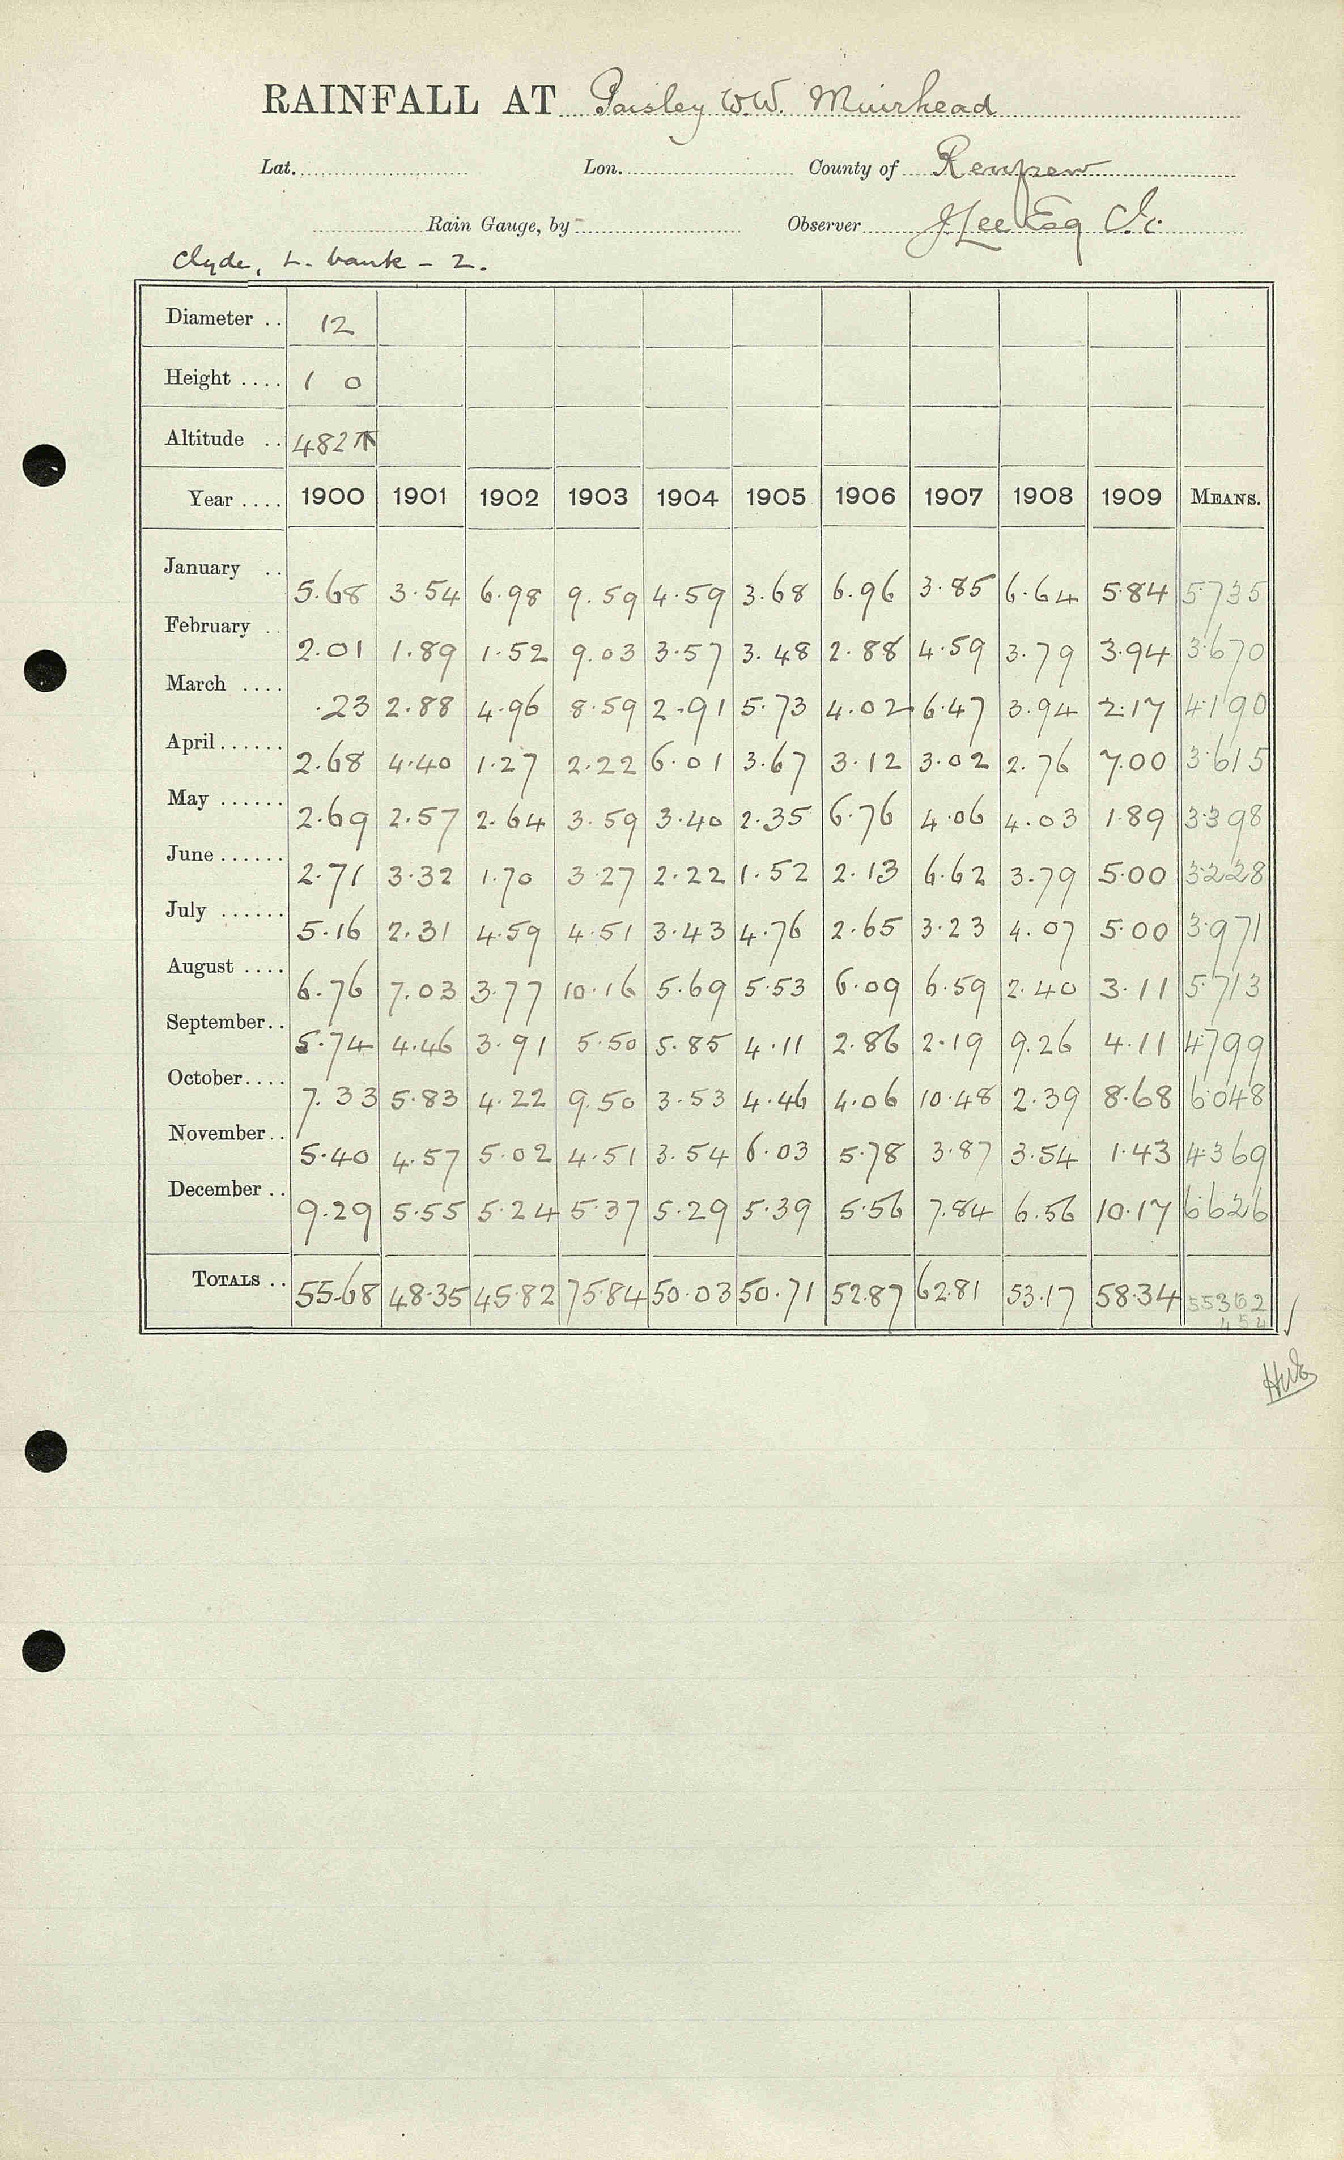 RAINFALL AT Paisley W.W. Muirhead
Lat. Lon. County of Renfrew
Rain Gauge, by Observer J Lee Esq
Clyde, L. bank - 2.
Diameter .. 12
Height .... 1 0
Altitude .. 482
Year .... 1900 1901 1902 1903 1904 1905 1906 1907 1908 1909 MEANS.
January .. 5.68 3.54 6.98 9.59 4.59 3.68 6.96 3.85 6.64 5.84 5.735
February .. 2.01 1.89 1.52 9.03 3.57 3.48 2.88 4.59 3.79 3.94 3.670
March .... .23 2.88 4.96 8.59 2.91 5.73 4.02 6.47 3.94 2.17 4.190
April ...... 2.68 4.40 1.27 2.22 6.01 3.67 3.12 3.02 2.76 7.00 3.615
May ...... 2.69 2.57 2.64 3.59 3.40 2.35 6.76 4.06 4.03 1.89 3.398
June ...... 2.71 3.32 1.70 3.27 2.22 1.52 2.13 6.62 3.79 5.00 3.228
July ...... 5.16 2.31 4.59 4.51 3.43 4.76 2.65 3.23 4.07 5.00 3.971
August .... 6.76 7.03 3.77 10.16 5.69 5.53 6.09 6.59 2.40 3.11 5.713
September.. 5.74 4.46 3.91 5.50 5.85 4.11 2.86 2.19 9.26 4.11 4.799
October.... 7.33 5.83 4.22 9.50 3.53 4.46 4.06 10.48 2.39 8.68 6.048
November.. 5.40 4.57 5.02 4.51 3.54 6.03 5.78 3.87 3.54 1.43 4.369
December .. 9.29 5.55 5.24 5.37 5.29 5.39 5.56 7.84 6.56 10.17 6.626
TOTALS .. 55.68 48.35 45.82 75.84 50.03 50.71 52.87 62.81 53.17 58.34 55362